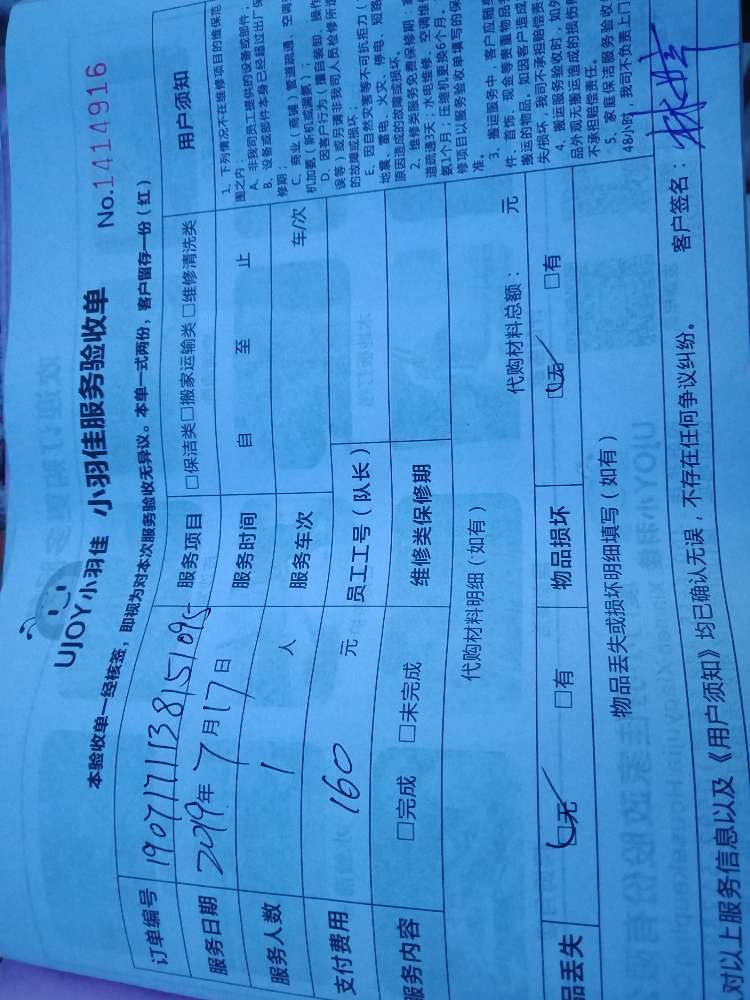 UJOY小羽佳 小羽佳服务验收单
No.1414916
本验收单一经核签，即视为对本次服务验收无异议。本单一式两份，客户留存一份（红）
订单编号 190717113815109 服务项目 □保洁类□搬家运输类□维修清洗类
服务日期 2019年7月17日 服务时间 自 至 止
服务人数 1 人 服务车次 车/次
支付费用 160 元 员工工号（队长）
服务内容 □完成 □未完成 维修类保修期
代购材料明细（如有） 代购材料总额： 元
品丢失 □无 □有 物品损坏 □无 □有
物品丢失或损坏明细填写（如有）
用户须知
1、下列情况不在维修项目的维保范
围之内
A、非我司员工提供的设备或部件；
B、设备或部件本身已经超过出厂保
修期
C、商业（商铺）管道疏通、空调
机加氨（新机或漏氨）；
D、因客户行为（擅自装卸、操作
误等）或另请非我司人员检修所造
的故障或损坏；
E、因自然灾害等不可抗拒力（
地震、雷电、火灾、停电、短路
原因造成的故障或损坏。
2、维修类服务免费保修期：
道疏通3天；水电维修、空调维
氨1个月；压缩机更换6个月，
修项目以服务验收单填写的保
准。
3、搬运服务中，客户应随身
件、首饰、现金等贵重物品
搬运的物品，如因客户造成
失/损坏，我司不承担赔偿责
4、搬运服务验收时，如外
品外观无搬运造成的损伤
不承担赔偿责任。
5、家庭保洁服务验收
48小时，我司不负责上门
对以上服务信息以及《用户须知》均已确认无误，不存在任何争议纠纷。 客户签名：